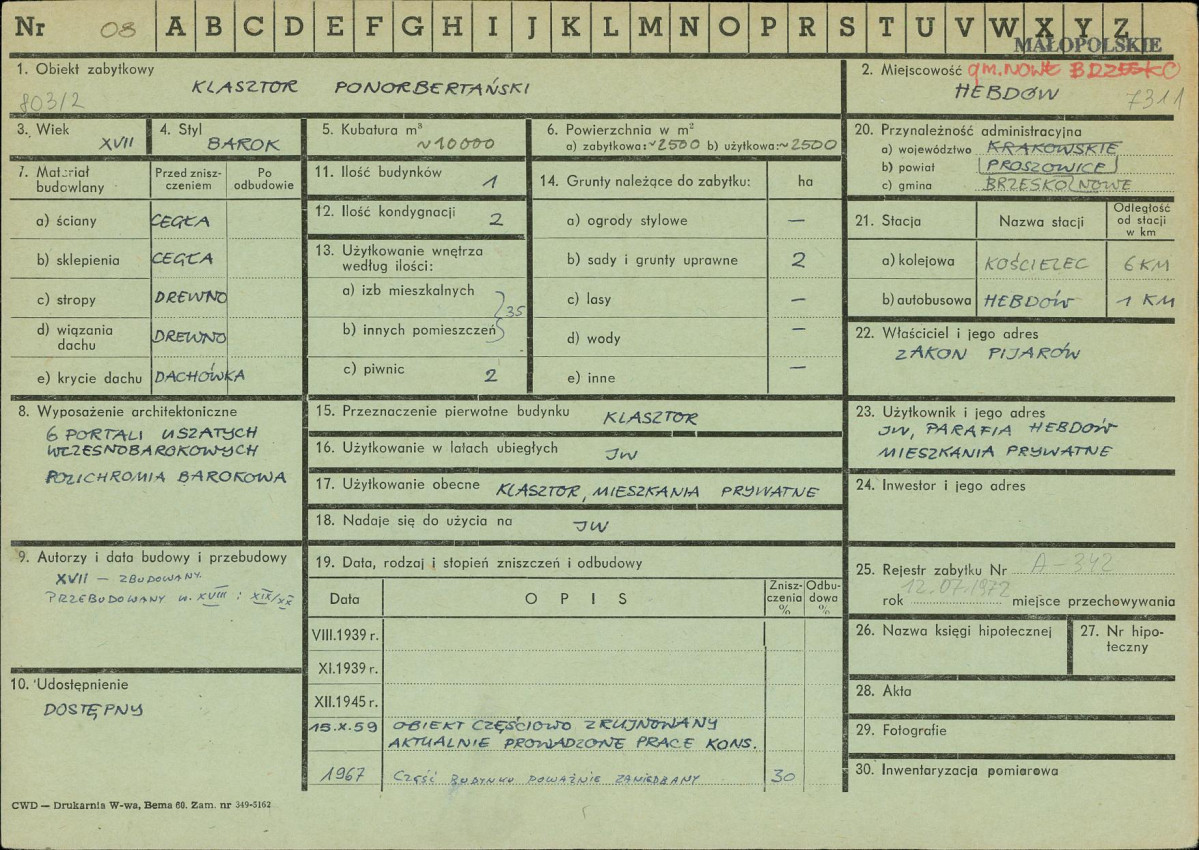 Nr 08 A B C D E F G H I J K L M N O P R S T U V W X Y Z
MAŁOPOLSKIE
1. Obiekt zabytkowy
KLASZTOR PONORBERTAŃSKI
803/2
2. Miejscowość gm. NOWE BRZESKO
HEBDÓW 7311
3. Wiek
XVII
4. Styl
BAROK
5. Kubatura m³
~10000
6. Powierzchnia w m²
a) zabytkowa: ~2500 b) użytkowa: ~2500
7. Materiał budowlany
Przed zniszczeniem
Po odbudowie
a) ściany CEGŁA
b) sklepienia CEGŁA
c) stropy DREWNO
d) wiązania dachu DREWNO
e) krycie dachu DACHÓWKA
8. Wyposażenie architektoniczne
6 PORTALI USZATYCH
WCZESNOBAROKOWYCH
POLICHROMIA BAROKOWA
9. Autorzy i data budowy i przebudowy
XVII – ZBUDOWANY.
PRZEBUDOWANY w. XVIII i XIX/XX
10. Udostępnienie
DOSTĘPNY
11. Ilość budynków 1
12. Ilość kondygnacji 2
13. Użytkowanie wnętrza
według ilości:
a) izb mieszkalnych
35
b) innych pomieszczeń
c) piwnic 2
14. Grunty należące do zabytku: ha
a) ogrody stylowe —
b) sady i grunty uprawne 2
c) lasy —
d) wody —
e) inne —
15. Przeznaczenie pierwotne budynku KLASZTOR
16. Użytkowanie w latach ubiegłych JW
17. Użytkowanie obecne KLASZTOR, MIESZKANIA PRYWATNE
18. Nadaje się do użycia na JW
19. Data, rodzaj i stopień zniszczeń i odbudowy
Data OPIS Zniszczenia % Odbudowa %
VIII.1939 r.
XI.1939 r.
XII.1945 r.
15.X.59 OBIEKT CZĘŚCIOWO ZRUJNOWANY
AKTUALNIE PROWADZONE PRACE KONS.
1967 CZĘŚĆ BUDYNKU POWAŻNIE ZANIEDBANY 30
20. Przynależność administracyjna
a) województwo KRAKOWSKIE
b) powiat PROSZOWICE
c) gmina BRZESKO NOWE
21. Stacja Nazwa stacji Odległość od stacji w km
a) kolejowa KOŚCIELEC 6 KM
b) autobusowa HEBDÓW 1 KM
22. Właściciel i jego adres
ZAKON PIJARÓW
23. Użytkownik i jego adres
JW, PARAFIA HEBDÓW
MIESZKANIA PRYWATNE
24. Inwestor i jego adres
25. Rejestr zabytku Nr A-342
rok 12.07.1972 miejsce przechowywania
26. Nazwa księgi hipotecznej
27. Nr hipoteczny
28. Akta
29. Fotografie
30. Inwentaryzacja pomiarowa
CWD — Drukarnia W-wa, Bema 60. Zam. nr 349-5162